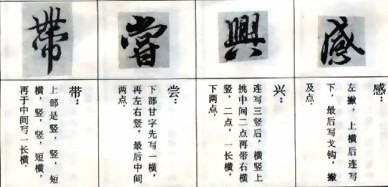 感
感：
左撇，上横后连写
下，最后写戈钩，撇
及点。
興
兴：
连写三竖后，横竖上
挑中间二点再带右横
竖，二点，一长横，
下两点。
嘗
尝：
下部甘字先写一横，
再左右竖，最后中间
两点。
帶
带：
上部是竖，竖，短
横，竖，竖，短横，
再于中间写一长横。